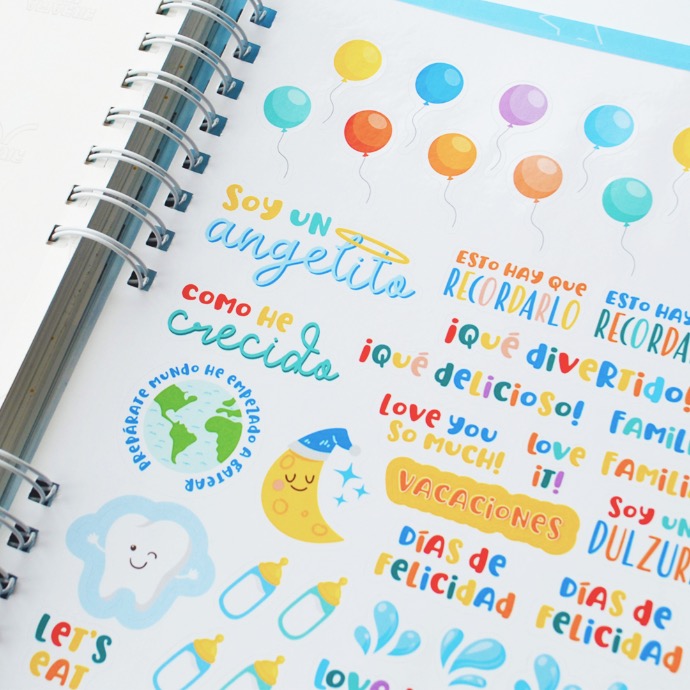 SOY UN
angelito
ESTO HAY QUE
RECORDARLO
ESTO HAY
COMO HE
crecido
¡QUÉ DIVERTIDO!
¡QUÉ DELICIOSO!
PREPÁRATE MUNDO HE EMPEZADO A GATEAR
LOVE YOU
SO MUCH!
LOVE
IT!
VACACIONES
SOY UN
DÍAS DE
FELICIDAD
DÍAS DE
FELICIDAD
LET'S
EAT